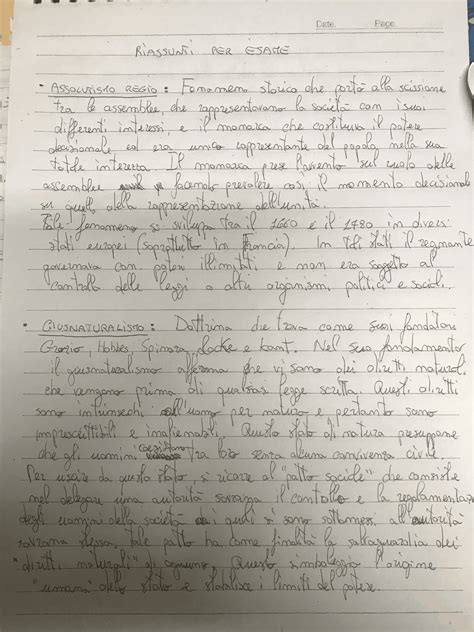 Date. Page.
RIASSUNTI PER ESAME
• ASSOLUTISMO REGIO: Fenomeno storico che portò alla scissione
tra le assemblee, che rappresentavano la società con i suoi
differenti interessi, e il monarca che costituiva il potere
decisionale ed era unico rappresentante del popolo nella sua
totale interezza. Il monarca prese il sul ruolo delle
assemblee facendo prevalere così il momento decisionale
su quello della rappresentazione dell'unità.
Tale fenomeno si sviluppa tra il 1660 e il 1780 in diversi
stati europei (soprattutto in Francia). In tali stati il regnante
governava con poteri illimitati e non era soggetto al
controllo delle leggi o altri organismi politici e sociali.
• GIUSNATURALISMO: Dottrina che trova come suoi fondatori
Grozio, Hobbes, Spinoza, Locke e Kant. Nel suo fondamento
il giusnaturalismo afferma che vi sono dei diritti naturali
che vengono prima di qualsiasi legge scritta. Questi diritti
sono intrinsechi all'uomo per natura e pertanto sono
imprescrittibili e inalienabili. Questo stato di natura presuppone
che gli uomini coesistano tra loro senza alcuna convivenza civile.
Per uscire da questo stato, si ricorre al "patto sociale" che consiste
nel delegare una autorità sovrana il controllo e la regolamentazione
degli uomini della società i quali si sono sottomessi all'autorità
sovrana stessa, tale patto ha come finalità la salvaguardia dei
"diritti naturali" di ognuno. Questo simboleggia l'origine
"umana" dello stato e stabilisce i limiti del potere.